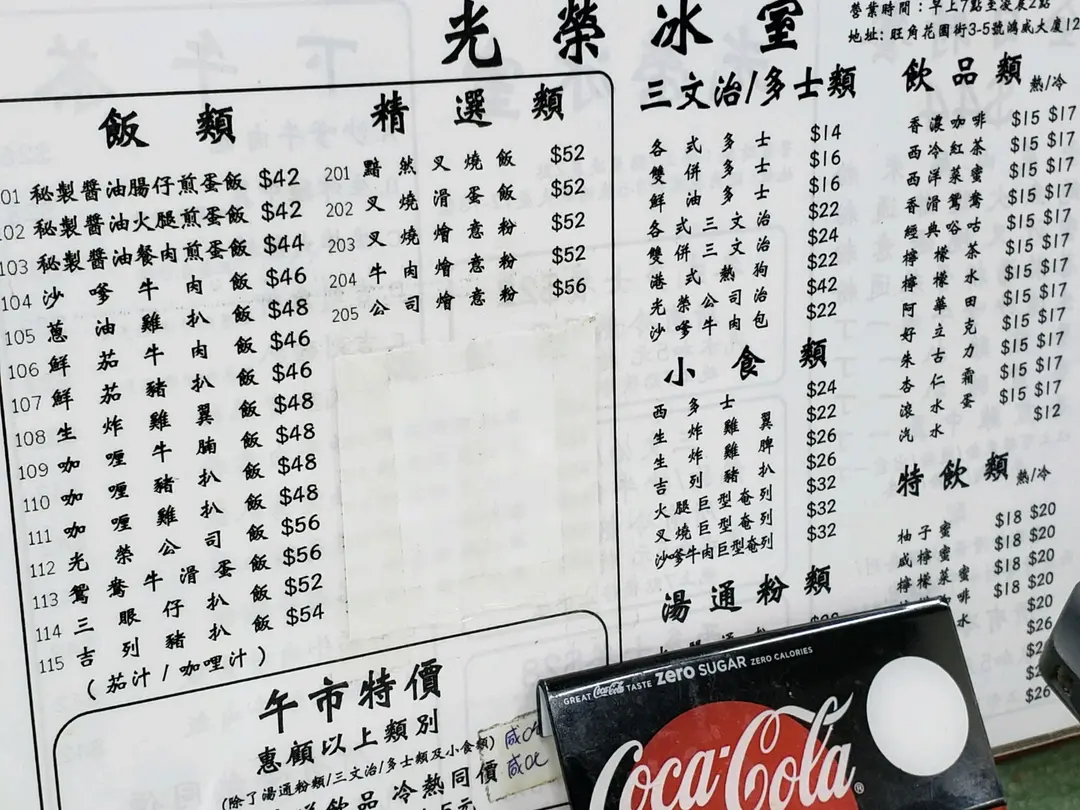 光榮冰室
營業時間：早上7點至凌晨2點
地址: 旺角花園街3-5號鴻威大廈
飯類
101 秘製醬油腸仔煎蛋飯 $42
102 秘製醬油火腿煎蛋飯 $42
103 秘製醬油餐肉煎蛋飯 $44
104 沙嗲牛肉飯 $46
105 蔥油雞扒飯 $48
106 鮮茄牛肉飯 $46
107 鮮茄豬扒飯 $46
108 生炸雞翼飯 $48
109 咖喱牛腩飯 $48
110 咖喱豬扒飯 $48
111 咖喱雞扒飯 $48
112 光榮公司飯 $56
113 鴛鴦牛滑蛋飯 $56
114 三眼仔扒飯 $52
115 吉列豬扒飯 $54
(茄汁/咖哩汁)
精選類
201 黯然叉燒飯 $52
202 叉燒滑蛋飯 $52
203 叉燒燴意粉 $52
204 牛肉燴意粉 $52
205 公司燴意粉 $56
午市特價
惠顧以上類別
(除了湯通粉類/三文治/多士類及小食類)
飲品 冷熱同價
三文治/多士類
各式多士 $14
雙併多士 $16
鮮油多士 $16
各式三文治 $22
雙併三文治 $24
港式熱狗 $22
光榮公司治 $42
沙嗲牛肉包 $22
小食類
西多士 $24
生炸雞翼 $22
生炸雞脾 $26
吉列豬扒 $26
火腿巨型奄列 $32
叉燒巨型奄列 $32
沙嗲牛肉巨型奄列 $32
湯通粉類
飲品類 熱/冷
香濃咖啡 $15 $17
西冷紅茶 $15 $17
西洋菜蜜 $15 $17
香滑鴛鴦 $15 $17
經典唂咕 $15 $17
檸檬茶 $15 $17
檸檬水 $15 $17
阿華田 $15 $17
好立克 $15 $17
朱古力 $15 $17
杏仁霜 $15 $17
滾水蛋 $15 $17
汽水 $12
特飲類 熱/冷
柚子蜜 $18 $20
咸檸蜜 $18 $20
檸檬菜蜜 $18 $20
啡 $20
水 $26
$26
GREAT Coca-Cola TASTE zero SUGAR ZERO CALORIES
Coca-Cola